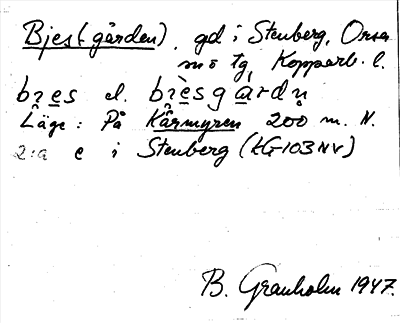 Bjes(-gården), gd i Stenberg, Orsa
sn o tg, Kopparb. l.
bres el. brèsgardn
Läge: På Kärmyren 200 m. N.
2:a e i Stenberg (EG-103 NV)
B. Granholm 1947.